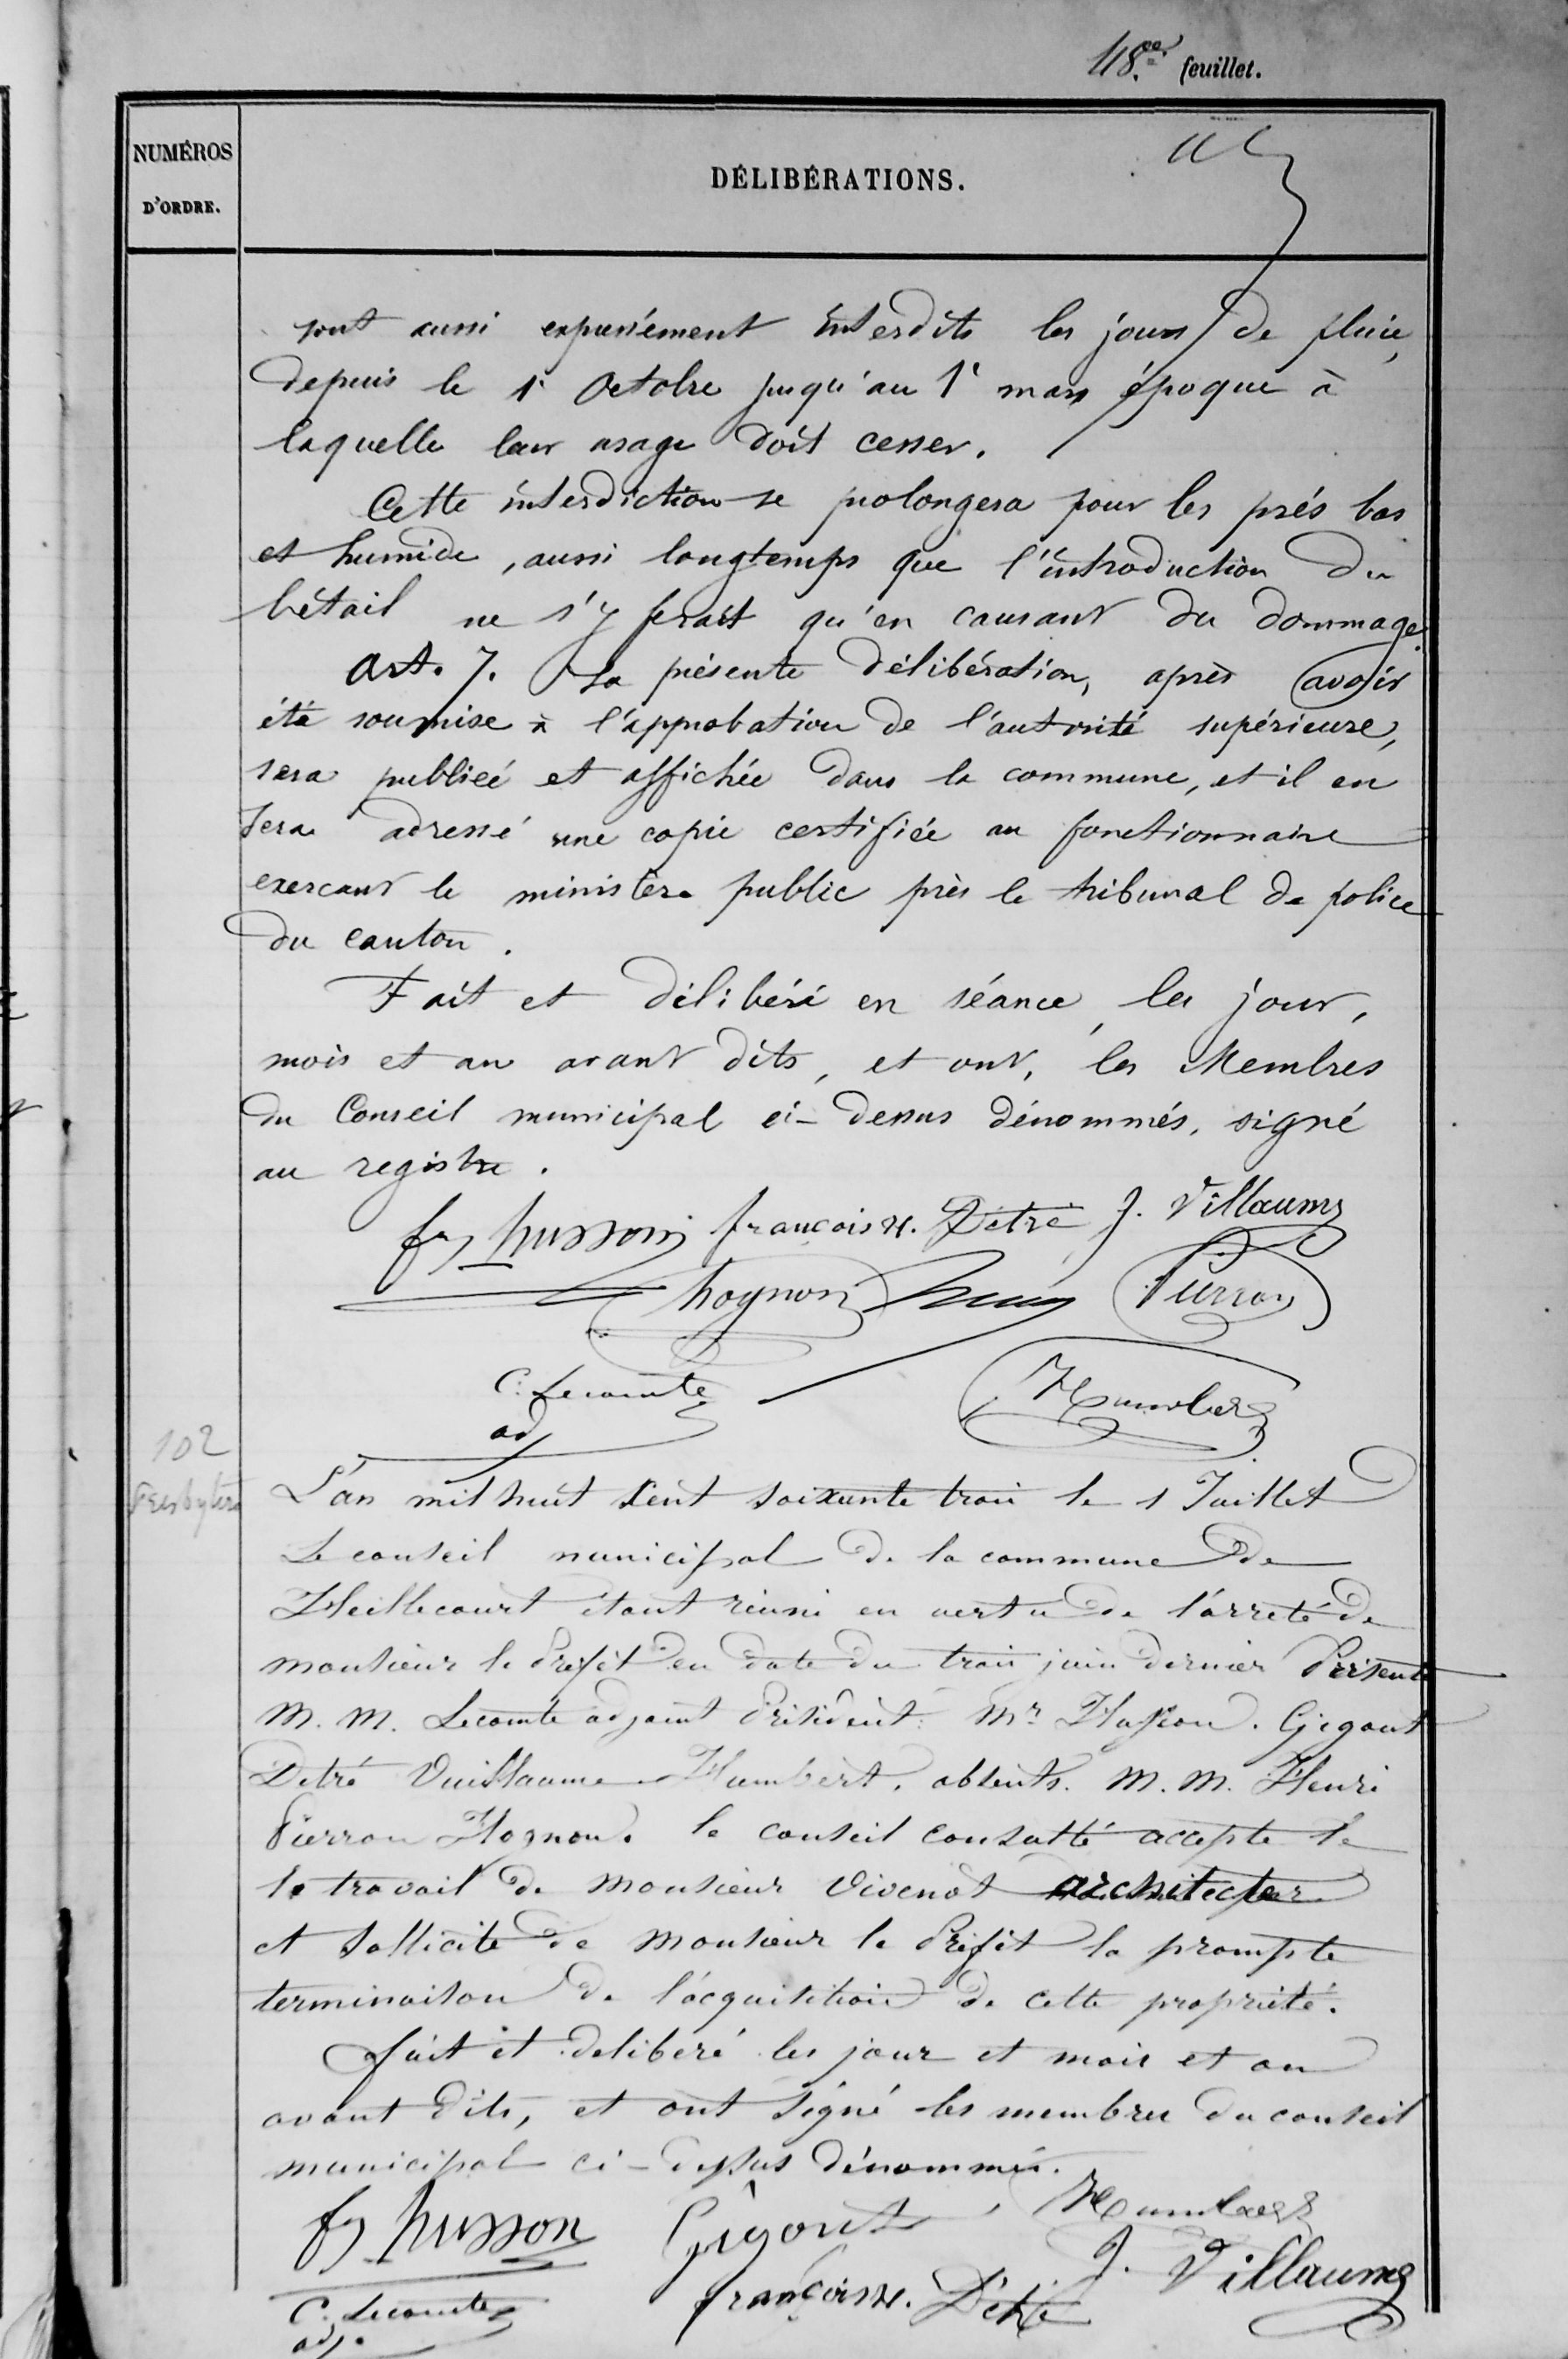 48.e feuillet.
NUMÉROS
D'ORDRE.
DÉLIBÉRATIONS.
sont aussi expressément interdits les jours de pluie,
depuis le 1r Octobre jusqu'au 1r mars époque à
laquelle leur usage doit cesser.
Cette interdiction se prolongera pour les prés bas
et humide, aussi longtemps que l'introduction du
bétail ne s'y ferait qu'en causant du dommage.
Art. 7. La présente délibération, après avoir
été soumise à l'approbation de l'autorité supérieure,
sera publiée et affichée dans la commune, et il en
sera adressé une copie certifiée au fonctionnaire
exerçant le ministère public près le tribunal de police
du canton.
Fait et délibéré en séance, les jour,
mois et an avant dits, et ont, les Membres
du Conseil municipal ci-dessus dénommés, signé
au registre.
fs husson françois H. Détré J. Villaume
hognon Pierron
C. Lecomte Humbert
adj
102
Presbytère
L'an mil huit cent soixante trois le 1 Juillet
Le conseil municipal de la commune de
Heillecourt étant réuni en vertu de l'arreté de
monsieur le Prefet en date du trois juin dernier Présents
M. M. Lecomte adjoint Président. Mr. Husson. Gigout
Detré Vuillaume Humbert. absents. M. M. Henri
Pierron Hognon. le conseil consulté accepte le
le travail de Monsieur Vivenot architecte
et sollicite de Monsieur le Préfet la prompte
terminaison de l'acquisition de cette propriété.
fait et deliberé les jour et mois et an
avant dits, et ont signé les membres du conseil
municipal ci-dessus dénommés.
fs husson Gigout Humbert
C. Lecomte françois H. Détré J. Villaume
adj.